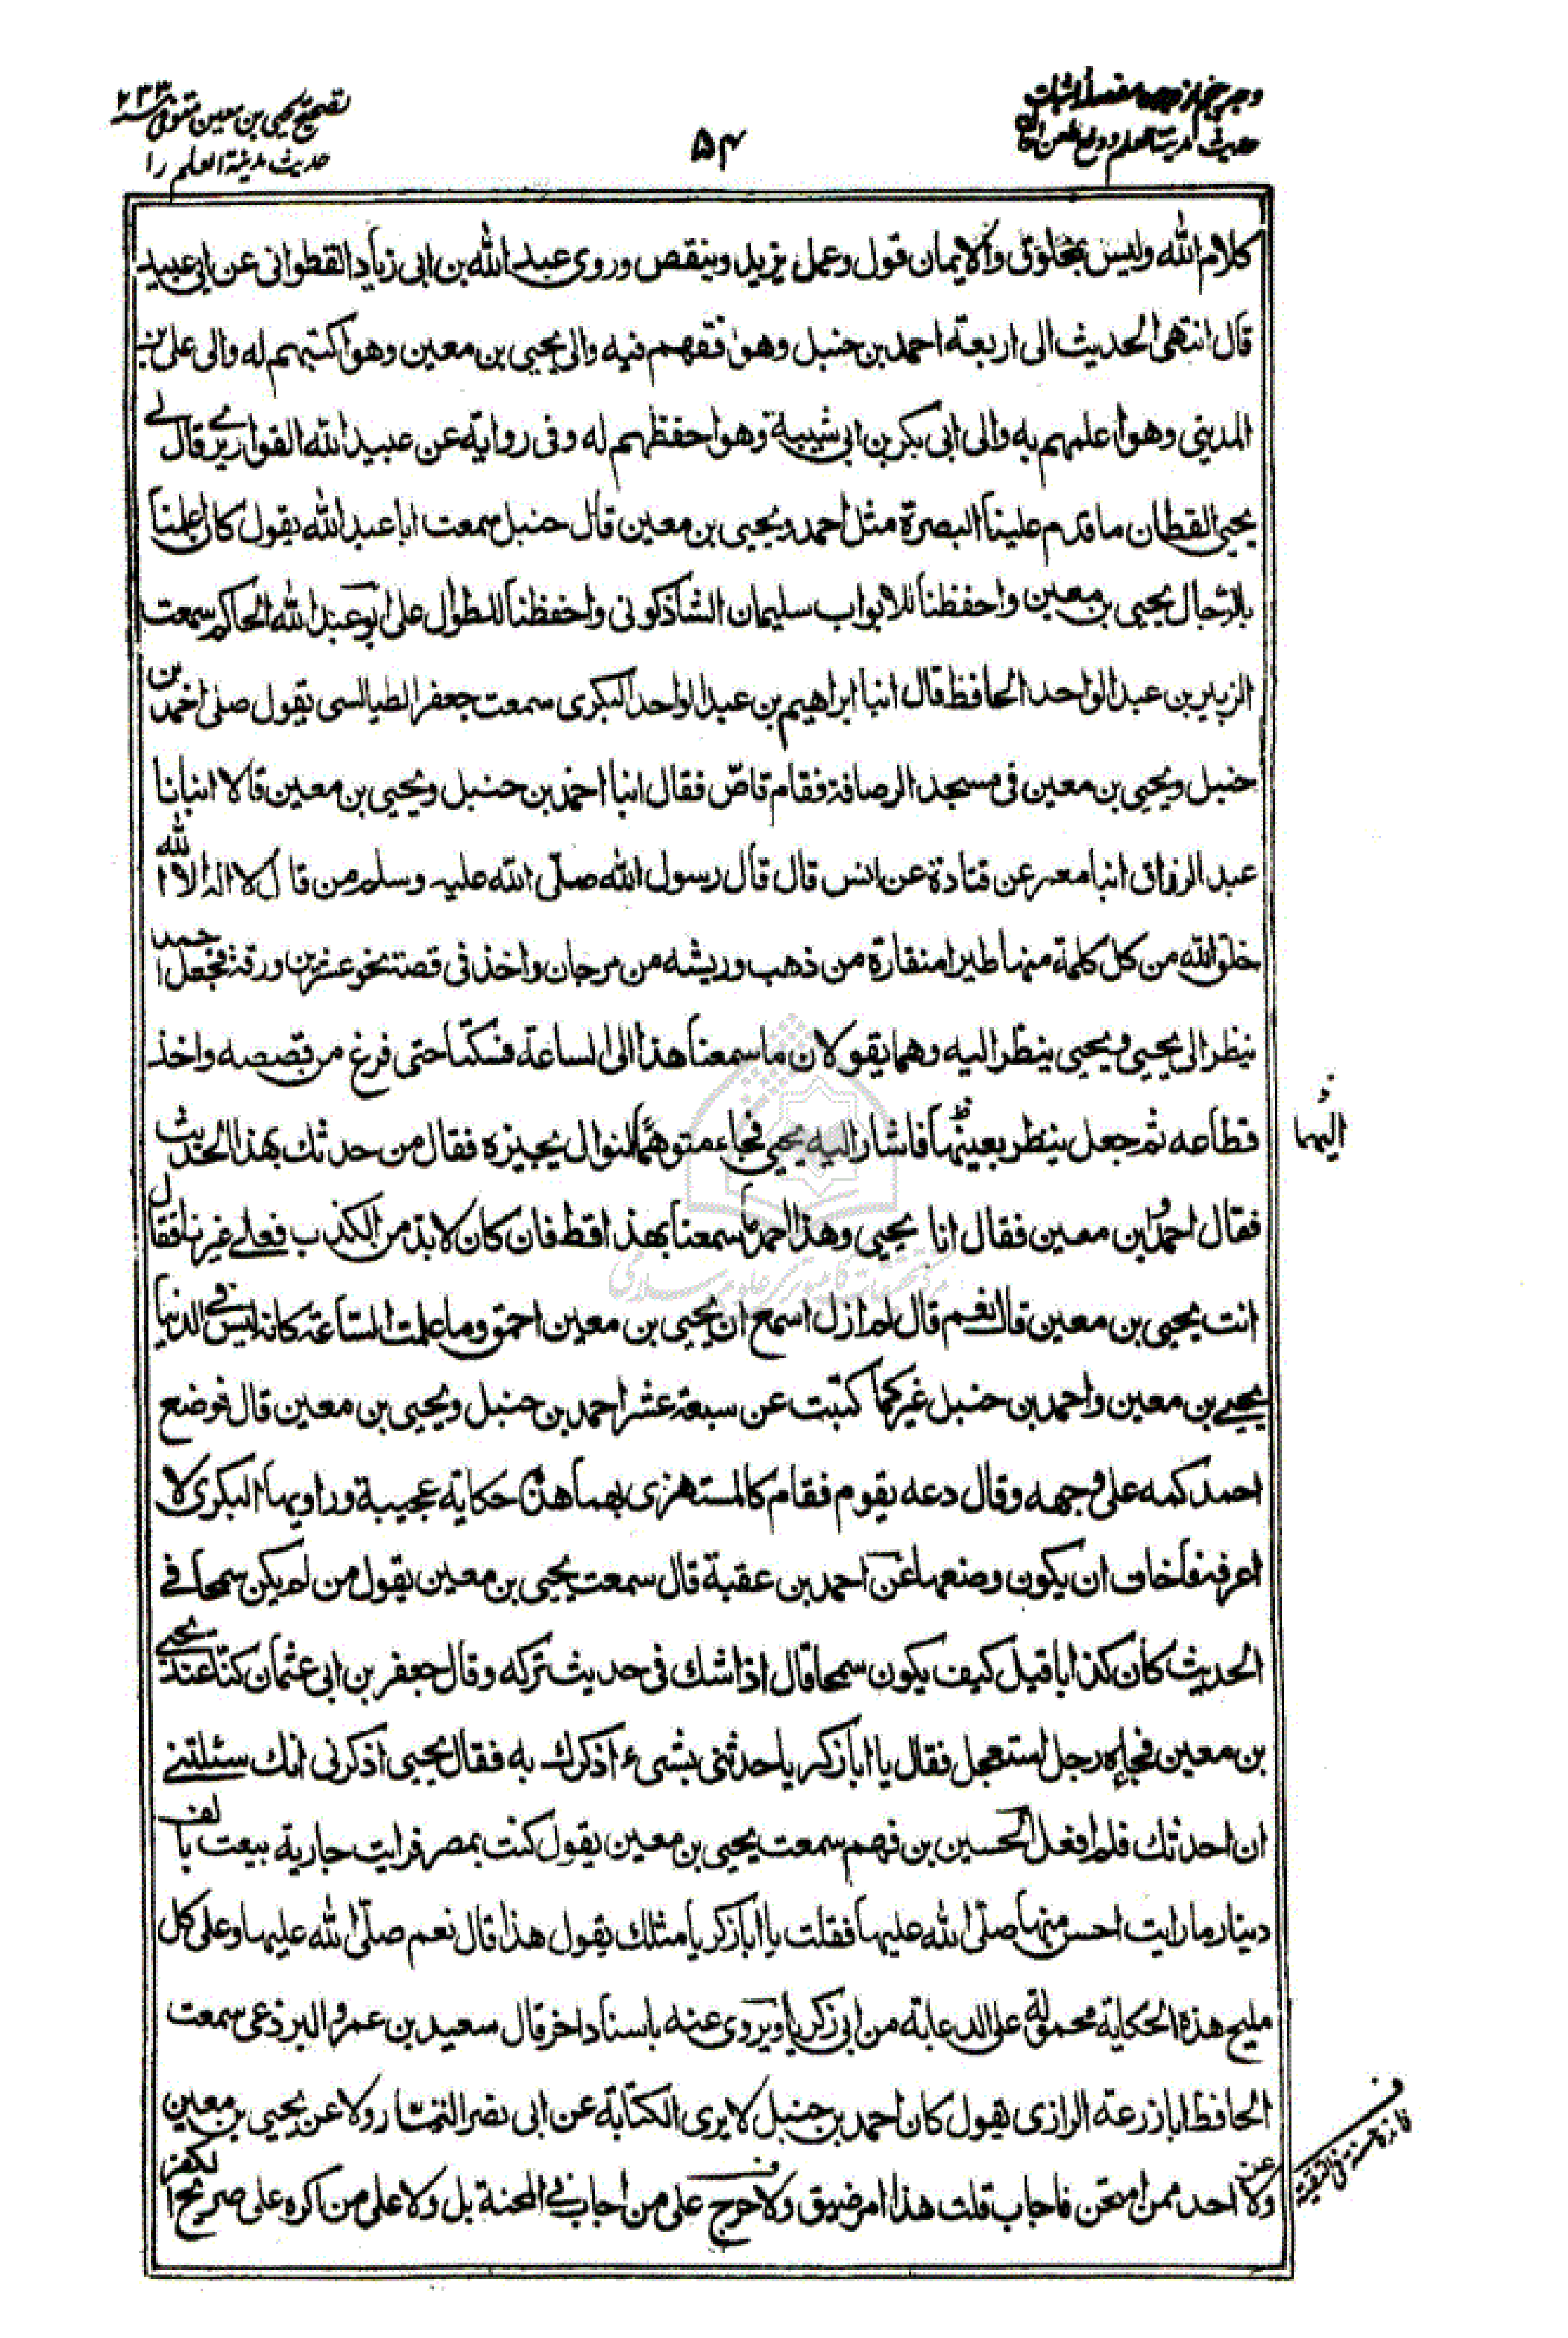 وجه پنجم از وجوه مفصله اثبات
حديث مدينة العلم و دفع طعن
۵۴
تصحيح يحيى بن معين متوفى سنه ۲۳۳
حديث مدينة العلم را
كلام الله وليس بمخلوق والايمان قول وعمل يزيد وينقص وروى عبد الله بن ابى زياد القطوانى عن ابى عبيد
قال انتهى الحديث الى اربعة احمد بن حنبل وهو افقههم فيه والى يحيى بن معين وهو اكتبهم له والى على بن
المدينى وهو اعلمهم به والى ابى بكر بن ابى شيبة وهو احفظهم له وفى رواية عن عبيد الله القواريرى قال لى
يحيى القطان ما قدم علينا البصرة مثل احمد ويحيى بن معين قال حنبل سمعت ابا عبد الله يقول كان اعلمنا
بالرجال يحيى بن معين واحفظنا للابواب سليمان الشاذكونى واحفظنا للطوال على ابو عبد الله الحاكم سمعت
الزبير بن عبد الواحد الحافظ قال انبا ابراهيم بن عبد الواحد البكرى سمعت جعفر الطيالسى يقول صلى احمد بن
حنبل ويحيى بن معين فى مسجد الرصافة فقام قاصّ فقال انبا احمد بن حنبل ويحيى بن معين قالا انبانا
عبد الرزاق انبا معمر عن قتادة عن انس قال قال رسول الله صلّى الله عليه وسلم من قال لا اله الا الله
خلق الله من كل كلمة منها طيرا منقارة من ذهب وريشه من مرجان واخذ فى قصته نحو عشرين ورقة فجعل احمد
ينظر الى يحيى ويحيى ينظر اليه وهما يقولان ما سمعنا هذا الى الساعة فسكتا حتى فرغ من قصصه واخذ
قطاعه ثم جعل ينظر بعينهما فاشار اليه يحيى فجاء متوهّما لنوال يجيزه فقال من حدثك بهذا الحديث
اليهما
فقال احمد وابن معين فقال انا يحيى وهذا احمد ما سمعنا بهذا قط فان كان لا بد من الكذب فعلى غيرنا فقال
انت يحيى بن معين قال نعم قال لم ازل اسمع ان يحيى بن معين احمق وما علمت الساعة كانه ليس فى الدنيا
يحيى بن معين واحمد بن حنبل غيركما كتبت عن سبعة عشر احمد بن حنبل ويحيى بن معين قال فوضع
احمد كمه على وجهه وقال دعه يقوم فقام كالمستهزى بهما هذه حكاية عجيبة وراويها البكرى لا
اعرفه فاخاف ان يكون وضعها عن احمد بن عقبة قال سمعت يحيى بن معين يقول من لم يكن سمحا فى
الحديث كان كذابا قيل كيف يكون سمحا قال اذا شك فى حديث تركه وقال جعفر بن ابى عثمان كنّا عند يحيى
بن معين فجاءه رجل مستعجل فقال يا ابا زكريا حدثنى بشىء اذكرك به فقال يحيى اذكرنى انك سئلتنى
ان احدثك فلم افعل الحسين بن فهم سمعت يحيى بن معين يقول كنت بمصر فرايت جارية بيعت بالف
دينار ما رايت احسن منها صلّى الله عليها فقلت يا ابا زكريا مثلك يقول هذا قال نعم صلّى الله عليها وعلى كل
مليح هذه الحكاية محمولة على الدعابة من ابى زكريا ويروى عنه باسناد اخر قال سعيد بن عمرو البرذعى سمعت
الحافظ ابا زرعة الرازى يقول كان احمد بن حنبل لا يرى الكتابة عن ابى نصر التمّار ولا عن يحيى بن معين
ولا عن احد ممن امتحن فاجاب قلت هذا امر ضيق ولا حرج على من اجاب فى المحنة بل ولا على من اكره على صريح الكفر
ف
فائدة حسنة فى التقية